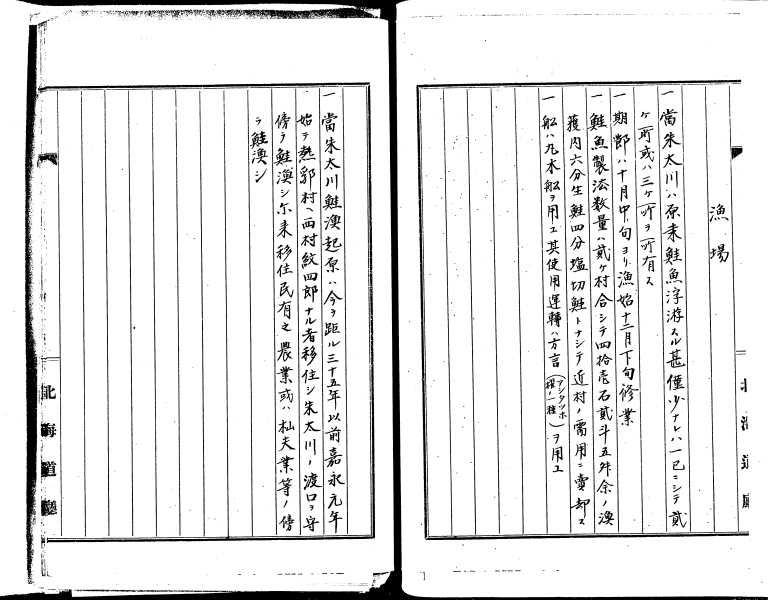 漁場
一 當朱太川ハ原来鮭魚浮游スル甚僅少ナレハ一己ニシテ貳
ケ所或ハ三ケ所ヲ所有ス
一 期節ハ十月中旬ヨリ漁始十二月下旬修業
一 鮭魚製法数量ハ貳ケ村合シテ四拾壱石貳斗五舛余ノ漁
獲内六分生鮭四分塩切鮭トナシテ近村ノ需用ニ賣却ス
一 船ハ丸木船ヲ用ユ其使用運轉ハ方言(アシタツホ 櫂ノ一種)ヲ用ユ
北海道廳
一 當朱太川鮭漁起原ハ今ヲ距ル三十五年以前嘉永元年
始テ熱郛村ヘ西村紋四郎ナル者移住シ朱太川ノ渡口ヲ守
傍ラ鮭漁シ尓来移住民有之農業或ハ杣夫業等ノ傍
ラ鮭漁シ
北海道廳